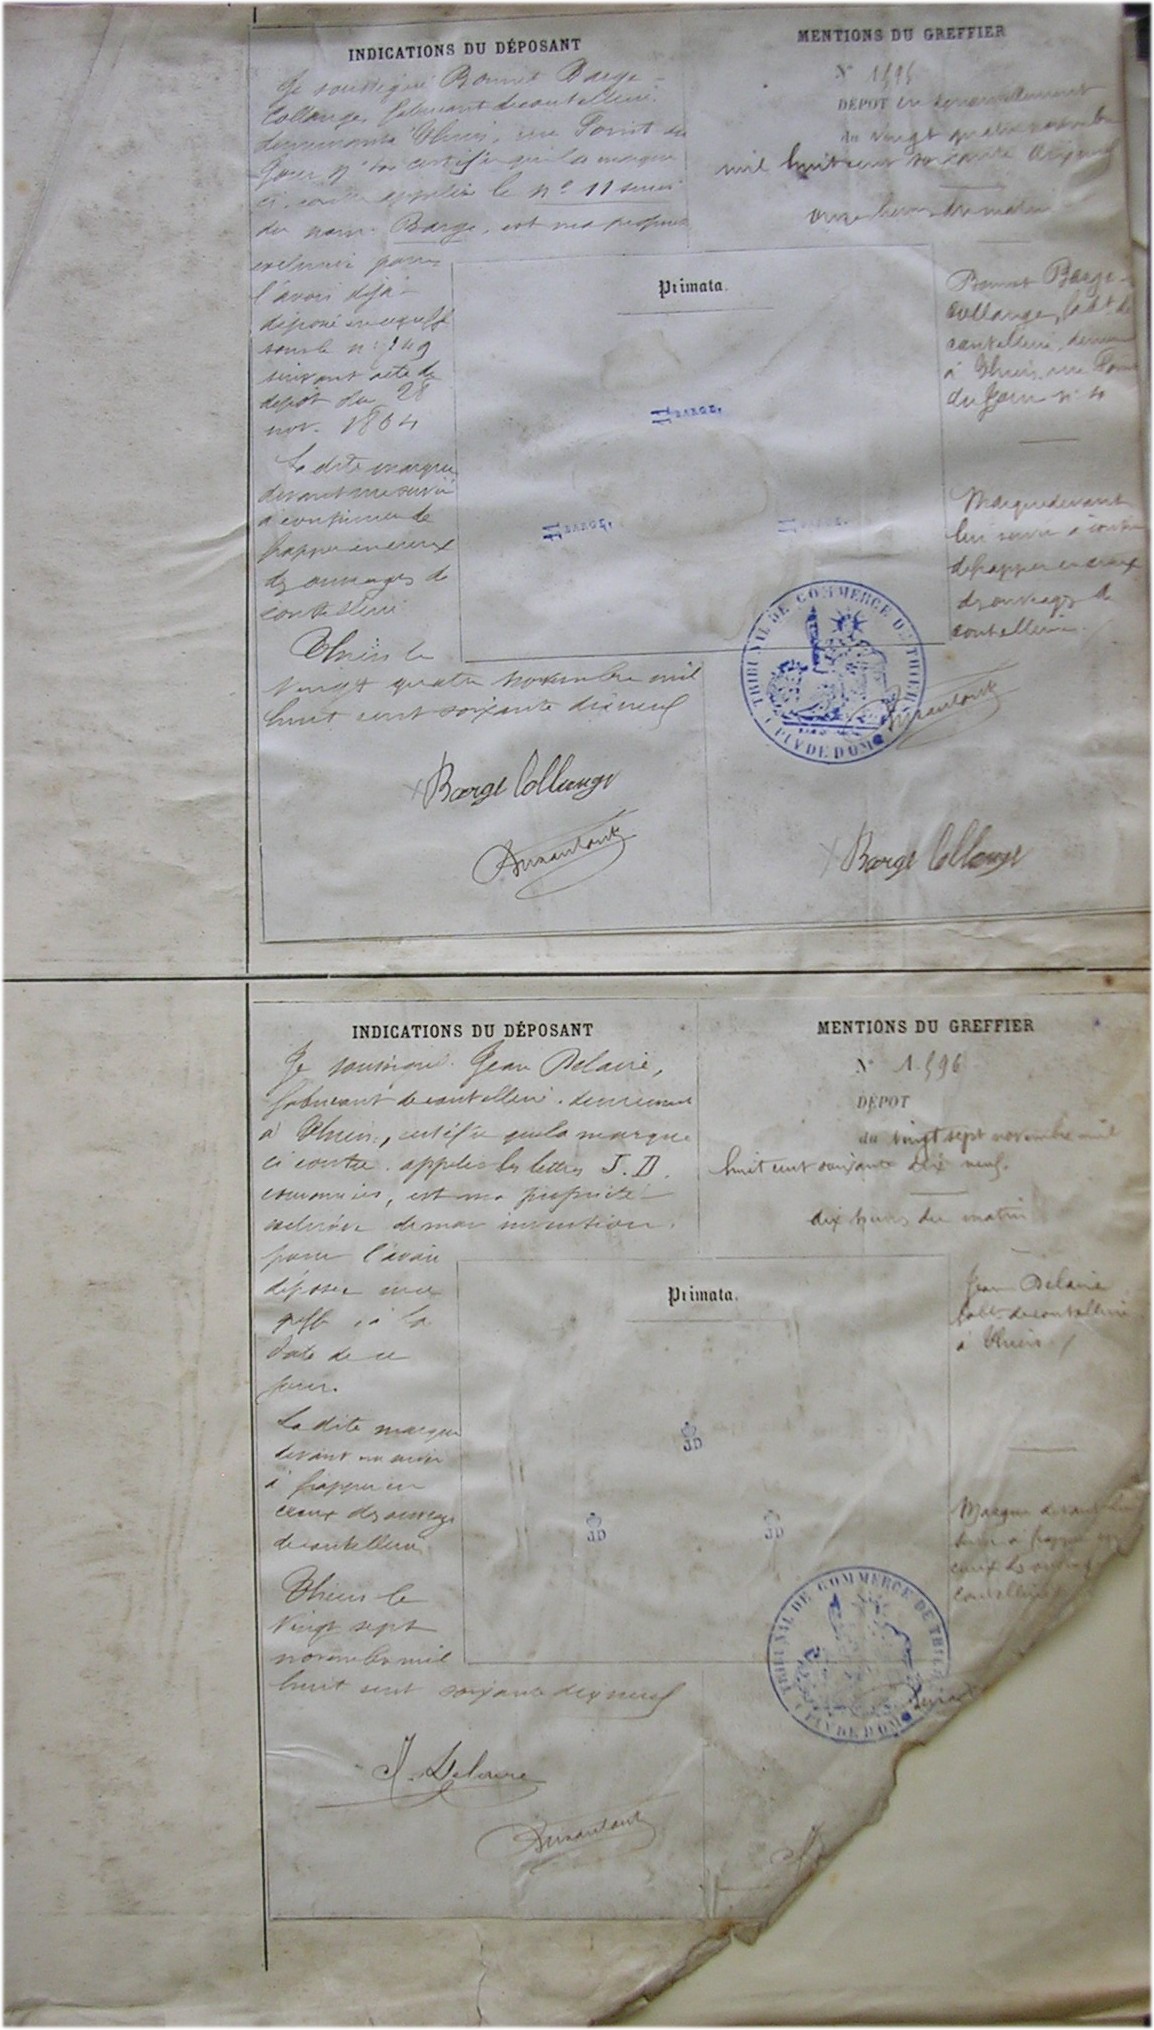 INDICATIONS DU DÉPOSANT
Je soussigné Bonnet Barge
Collange, fabricant de coutellerie
demeurant à Thiers, rue
certifie que la marque
ci contre appelée le nº 11 suivi
du nom Barge, est ma propriété
exclusive pour
l'avoir déjà
déposé au greffe
sous le nº
suivant acte de
dépôt du 28
nov. 1864
La dite marque
devant me servir
à continuer de
frapper en creux
des ouvrages de
coutellerie
Thiers le
vingt quatre novembre mil
huit cent soixante dix neuf
Barge Collange
MENTIONS DU GREFFIER
Nº 1595
DÉPOT en renouvellement
du vingt quatre novembre
mil huit cent soixante dix neuf
onze heures du matin
Primata.
11 BARGE.
11 BARGE.
11 BARGE.
Bonnet Barge
Collange, fabt de
coutellerie, demeurant
à Thiers, rue
du nº 4
Marque devant
leur servir à
de frapper en creux
des ouvrages de
coutellerie.
TRIBUNAL DE COMMERCE DE THIERS
PUY DE DOME
Barge Collange
INDICATIONS DU DÉPOSANT
Je soussigné Jean Delaire,
fabricant de coutellerie demeurant
à Thiers, certifie que la marque
ci contre appelée les lettres J.D.
couronnées, est ma propriété
exclusive de mon invention,
pour l'avoir
déposée au
greffe à la
date de ce
jour.
La dite marque
devant me servir
à frapper en
creux des ouvrages
de coutellerie.
Thiers le
vingt sept
novembre mil
huit cent soixante dix neuf
J. Delaire
MENTIONS DU GREFFIER
Nº 1.596
DÉPOT
du vingt sept novembre mil
huit cent soixante dix neuf.
dix heures du matin
Primata.
JD
JD
JD
Jean Delaire
fabt de coutellerie
à Thiers
Marque devant lui
servir à frapper en
creux des ouvrages
coutellerie
TRIBUNAL DE COMMERCE DE THIERS
PUY DE DOME